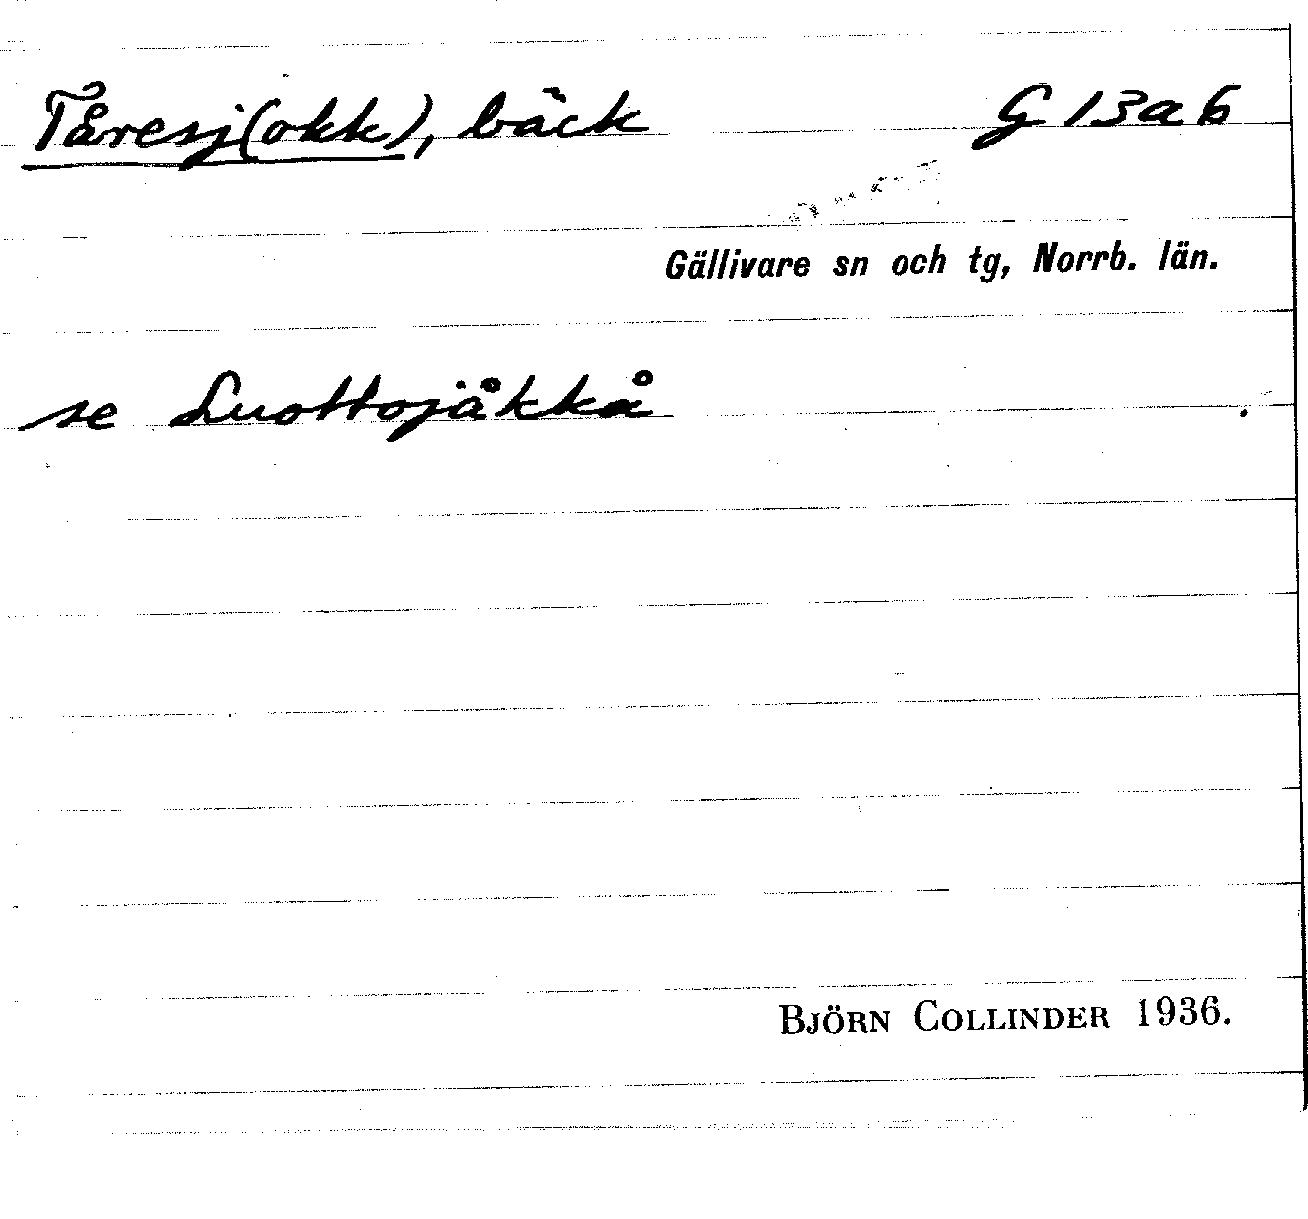 Tåresj(okk), bäck G 13 a b
Gällivare sn och tg, Norrb. län.
se Luottojåkkå
BJÖRN COLLINDER 1936.